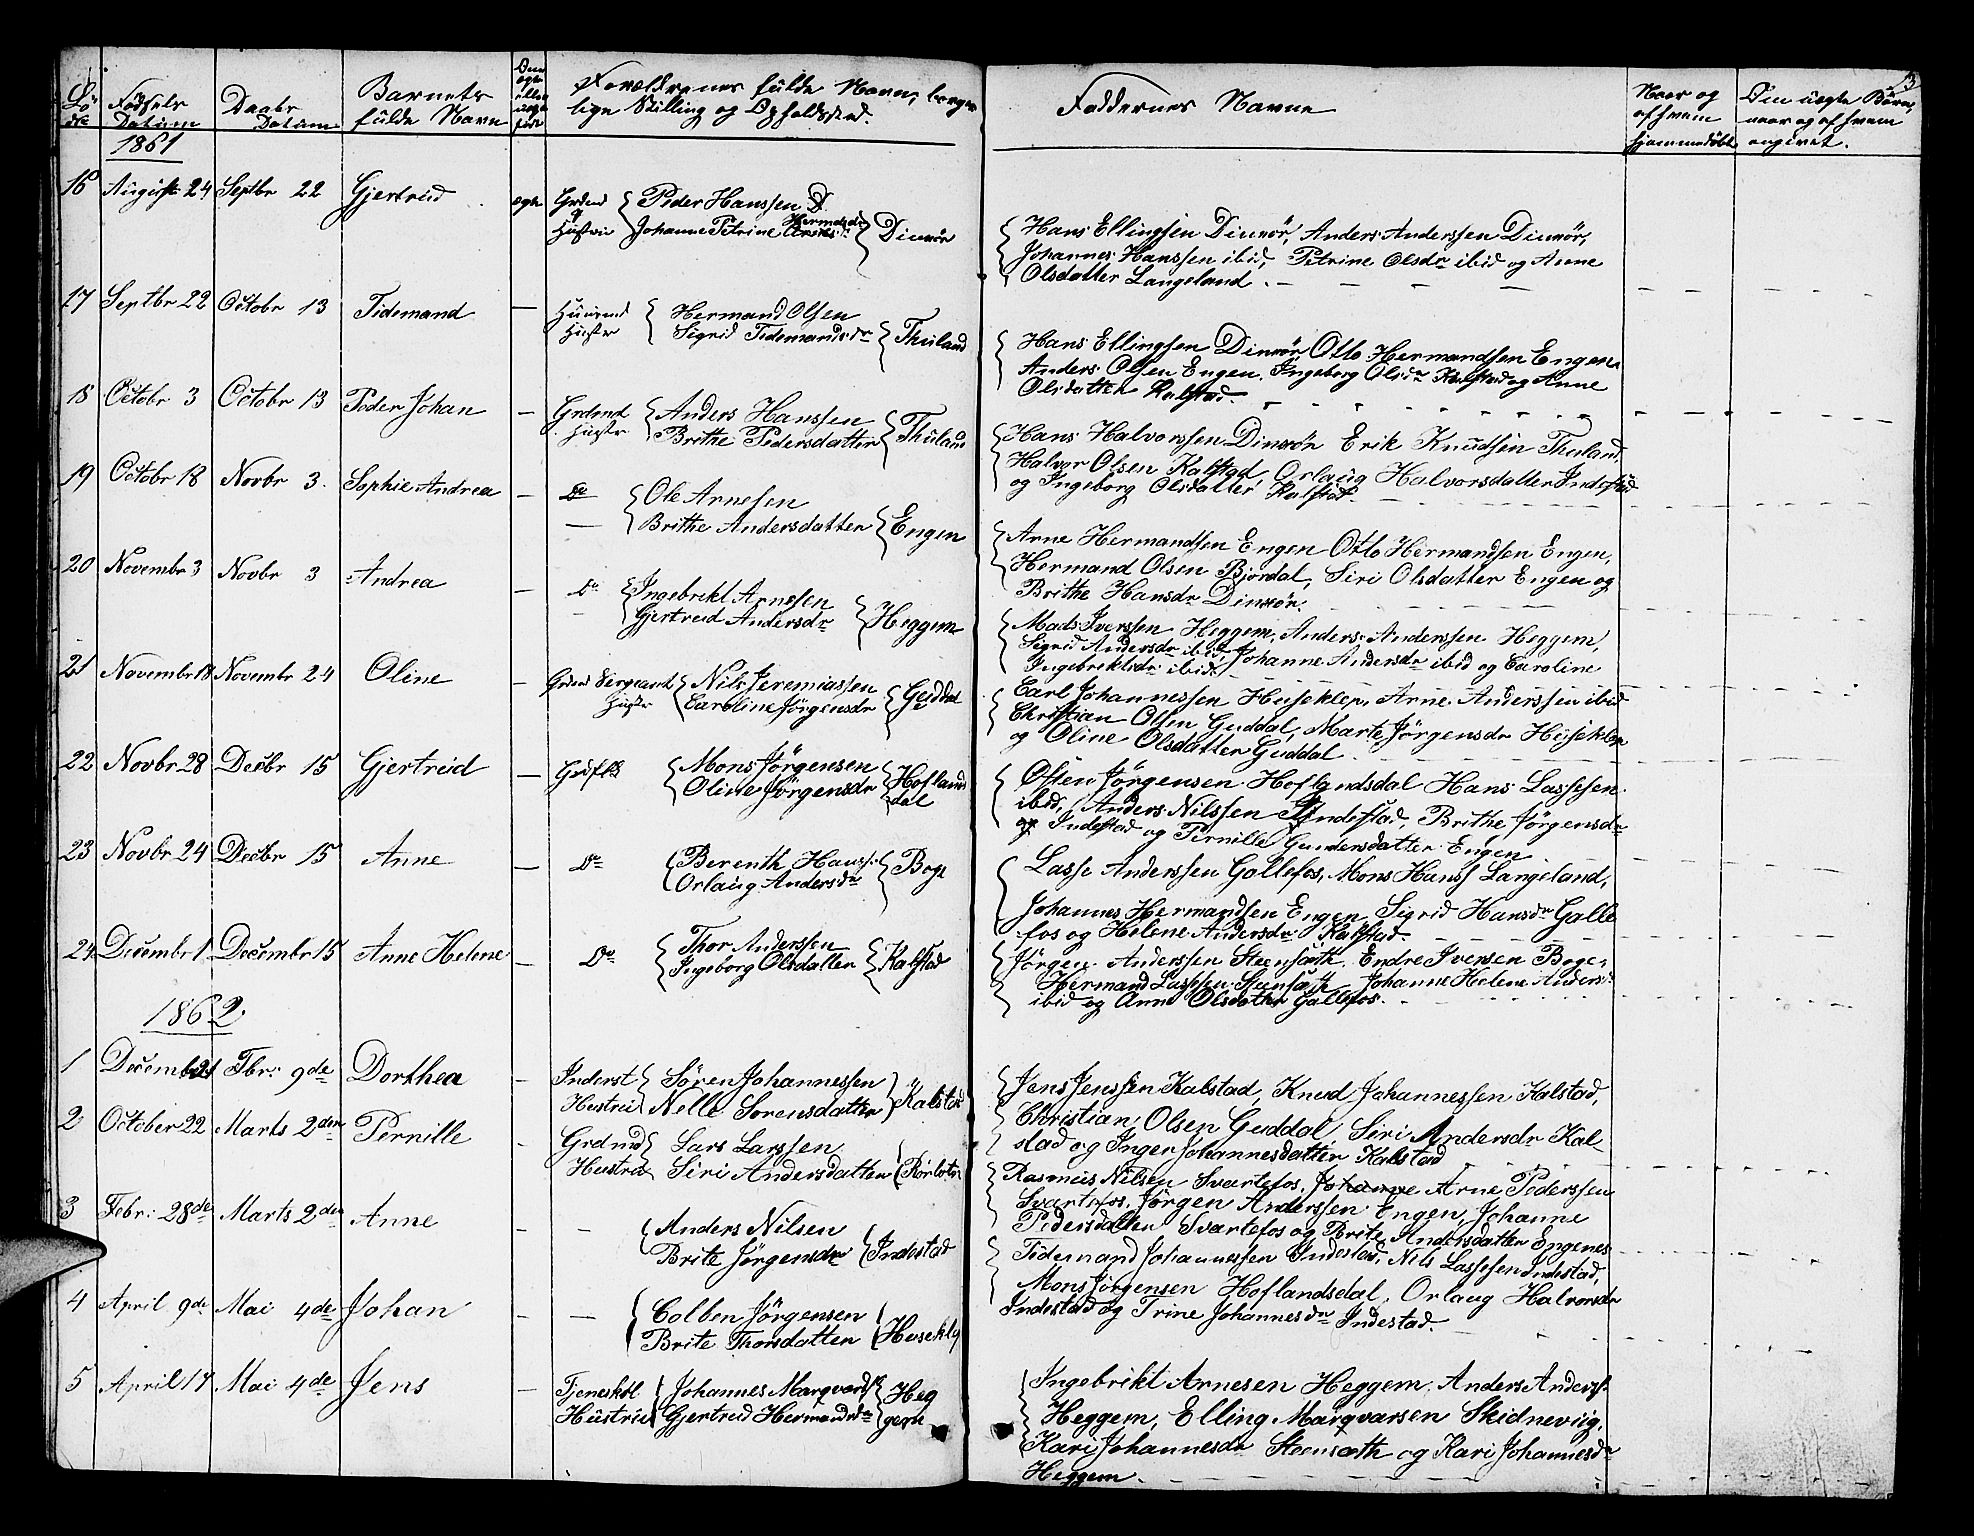 3
Fødsels Datum
Daabs Datum
Barnets fulde Navn
Forældrenes fulde Navn, borgerlige Stilling og Opholdssted.
Faddernes Navne
Naar og af hvem hjemmedøbt
Om uægte Børn, naar og af hvem angivet.
1861
16 August 24 Septbr 22 Gjertrud ægte
Grdmd Peder Hanssen
Hustrue Johanne Petrine
Hans Ellingsen Dinnør, Anders Anderssen Dinnør,
Johannes Hanssen ibid, Petrine Olsdr ibid og Anne
Olsdatter Langeland.
17 Septbr 22 Octobr 13 Tidemand —
Huusmd Hermand Olsen
Hustr Sigrid Tidemandsdr Thuland
Hans Ellingsen Dinnør, Otto Hermandsen Engen,
Anders Olsen Engen, Ingeborg Olsdr Kalstad og Anne
Olsdatter Kalstad.
18 Octobr 3 Octobr 13 Peder Johan —
Grdmd Anders Hanssen
Hustr Brithe Pedersdatter Thuland
Hans Halvorssen Dinnør Erik Knudsen Thuland
Halvor Olsen Kalstad, Orlaug Halvorsdatter Indestad
og Ingeborg Olsdatter Kalstad.
19 Octobr 18 Novbr 3. Sophie Andrea —
Do Ole Arnesen
— Brithe Andersdatter Engen
Arne Hermandsen Engen Otto Hermandsen Engen,
Hermand Olsen Bjordal, Siri Olsdatter Engen og
Brithe Hansdr Dinnør.
20 Novembr 3 Novbr 3 Andrea —
Do Ingebrikt Arnesen
— Gjertrud Andersdr Heggem
Mads Iverssen Heggem, Anders Anderssen Heggem,
Sigrid Andersdr ibid, Johanne Andersdr ibid og Caroline
Ingebriktsdr ibid.
21 Novembr 18 Novembr 24 Oline —
Grdmd Sergeant Nils Jeremiassen
Hustr Caroline Jørgensdr Guddal
Carl Johannessen Huseklep, Arne Anderssen ibid
Christian Olsen Guddal, Marte Jørgensdr Huseklep
og Oline Olsdatter Guddal.
22 Novbr 28 Decbr 15 Gjertrud —
Grdflk Mons Jørgensen
Oline Jørgensdr Hoflandsdal
Osten Jørgensen Hoflandsdal Hans Lassesen
ibid, Anders Nilssen Indestad, Brithe Jørgensdr
Indestad og Pernille Gundersdatter Engen
23 Novbr 24 Decbr 15 Anne —
Do Berenth Hanss.
Orlaug Andersdr Boge
Lasse Anderssen Gallefos, Mons Hanss Langeland,
Johannes Hermandsen Engen, Sigrid Hansdr Galle
fos og Helene Andersdr Kalstad.
24 Decembr 1 Decembr 15 Anne Helene —
Do Thor Anderssen
Ingeborg Olsdatter Kalstad
Jørgen Anderssen Steensæth. Endre Iversen Boge,
Hermand Lassesen Steensæth, Johanne Helene Andersdr
ibid og Anne Olsdatter Gallefos.
1862
1 Decembr 21 Fbr: 9de Dorthea —
Inderst Søren Johannessen
Hustrue Nelle Sørensdatter Kalstad
Jens Jenssen Kalstad, Knud Johannessen Kalstad,
Christian Olsen Guddal, Siri Andersdr Kal-
stad og Inger Johannesdatter Kalstad
2 October 22 Marts 2den Pernille —
Grdmd Lars Larssen
Hustrue Siri Andersdatter
Rasmus Nilsen Svartefos, Arne Pederssen
Svartefos, Jørgen Anderssen Engen, Johanne
Pedersdatter Svartefos og Brite Andersdatter Engenes
3 Febr: 28de Marts 2den Anne —
— Anders Nilsen
Brite Jørgensdr Indestad
Tidemand Johannessen Indestad, Nils Lassesen Indestad,
Mons Jørgensen Hoflandsdal, Orlaug Halvorsdr
Indestad og Trine Johannesdr Indestad.
4 April 9de Mai 4de Johan —
— Colben Jørgensen
Brite Thorsdatter Huseklep
5 April 17 Mai 4de Jens —
Tjenestkl Johannes Marqvards
Hustrue Gjertrud Hermandsdr Heg
gem
Ingebrikt Arnesen Heggem, Anders Anders.
Heggem, Elling Marqvarsen Skidneviig,
Kari Johannesdr Steensæth og Kari Johannesdr
Heggem.